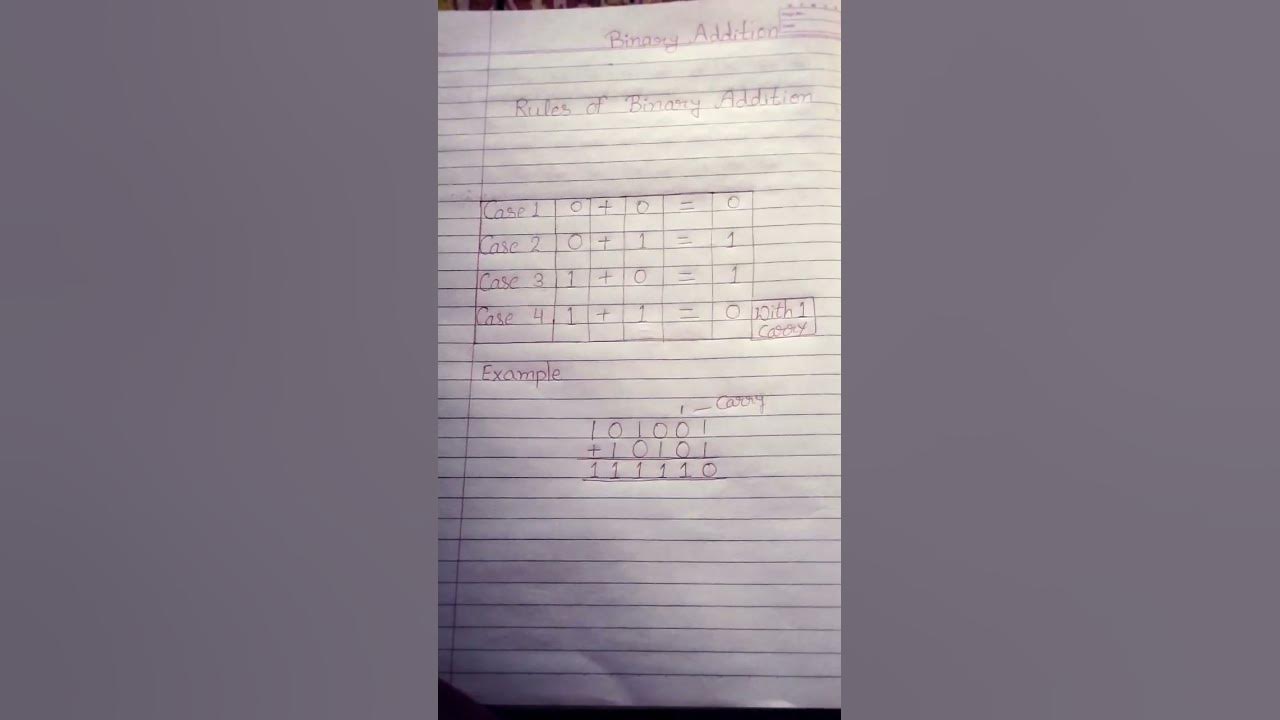 Binary Addition
Rules of Binary Addition
Case 1 0 + 0 = 0
Case 2 0 + 1 = 1
Case 3 1 + 0 = 1
Case 4 1 + 1 = 0 With 1
Carry
Example
1 — Carry
1 0 1 0 0 1
+ 1 0 1 0 1
1 1 1 1 1 0